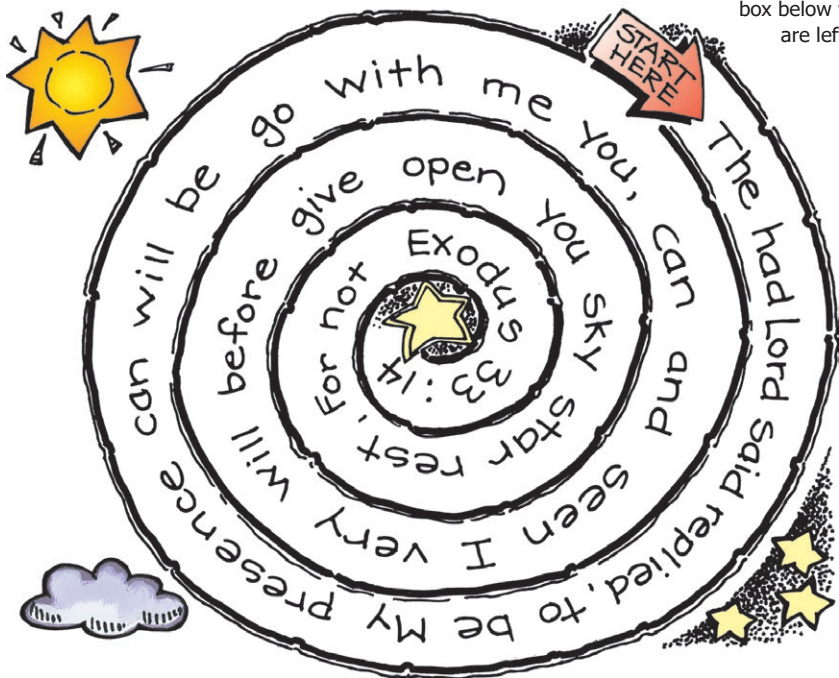 box below
are lef
START
HERE
The had Lord said replied, to be My presence can will be go with me you, can and seen I very will before give open you sky star rest. For not Exodus 33:14